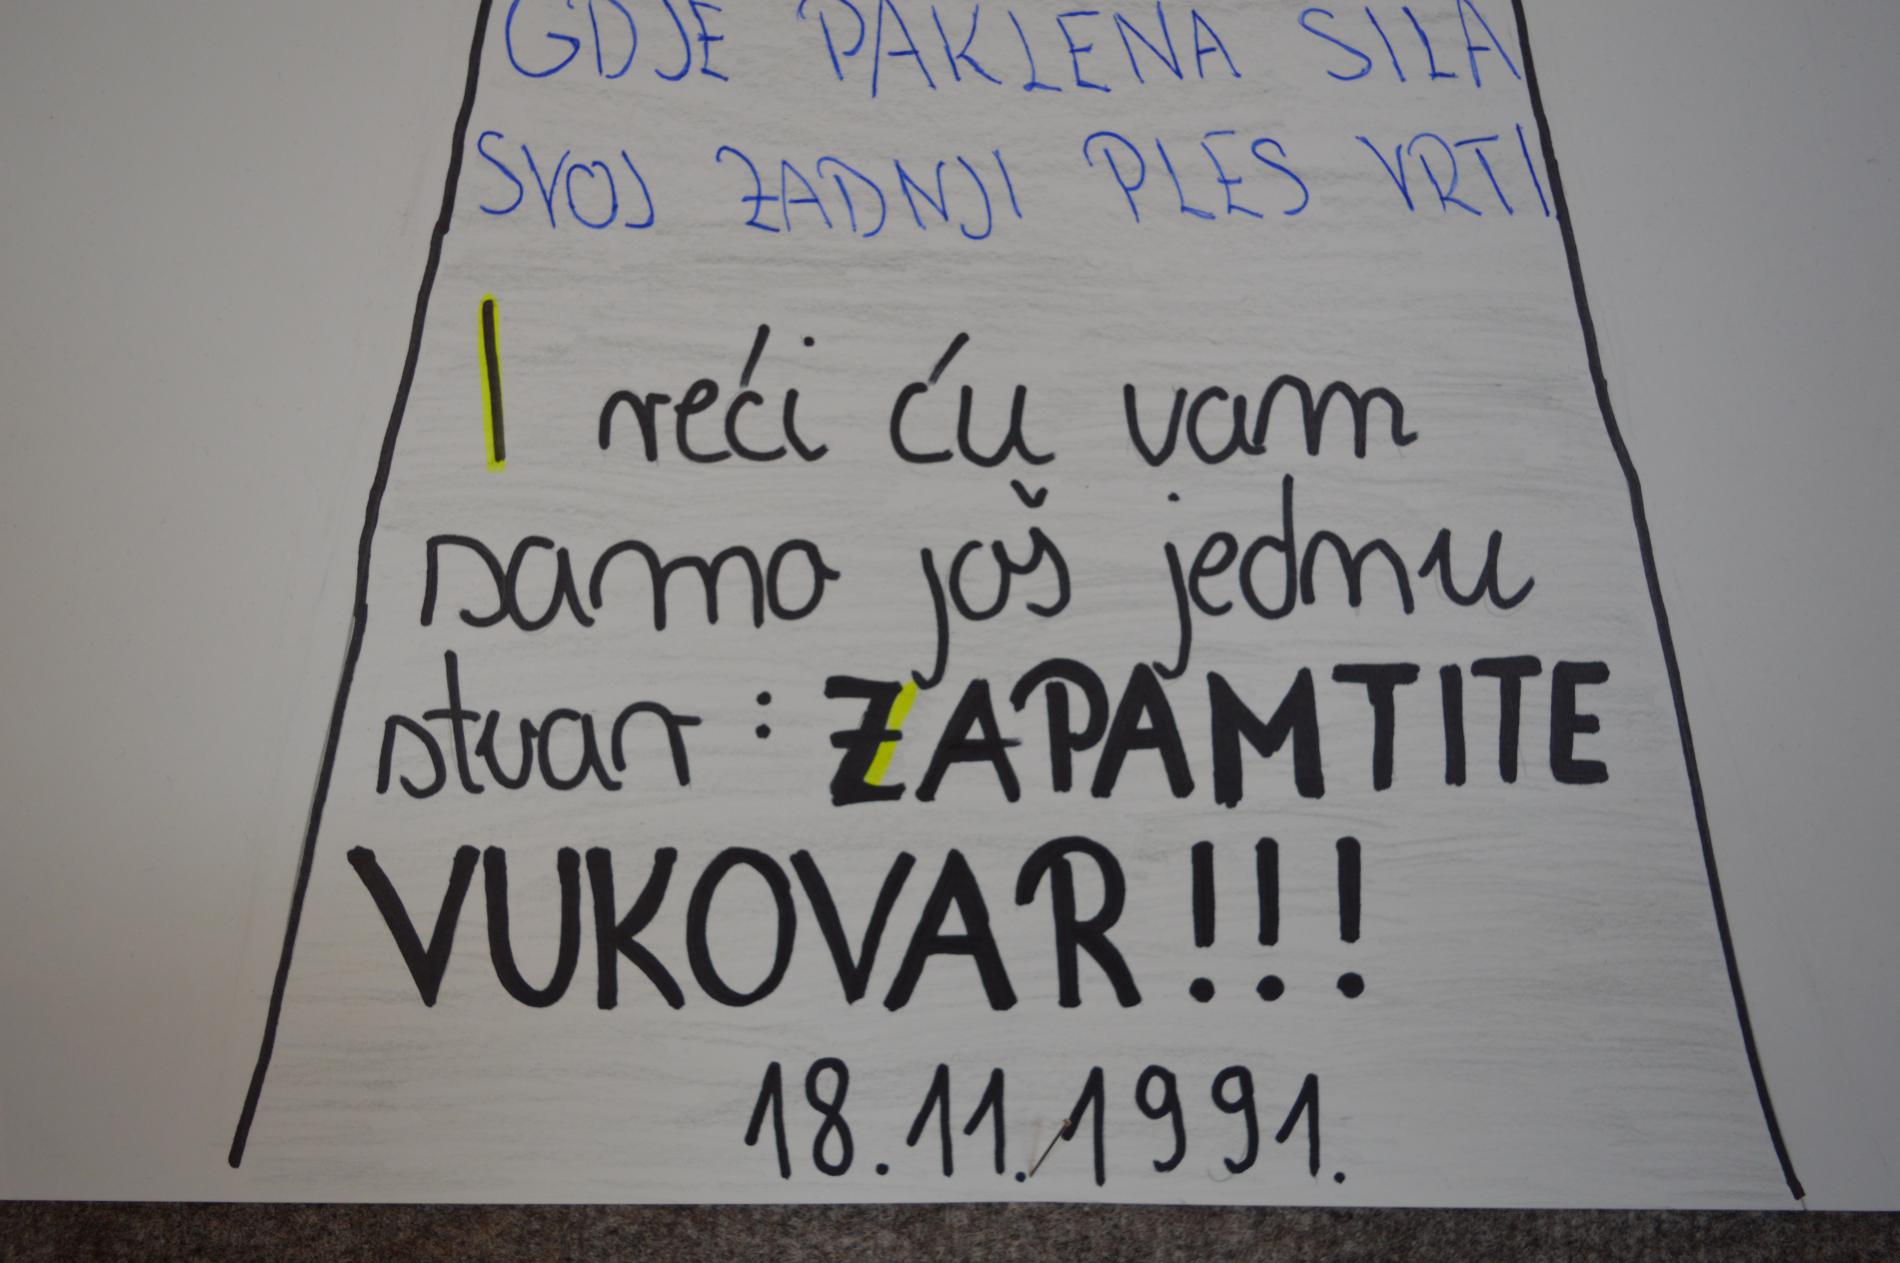 GDJE PAKLENA SILA
SVOJ ZADNJI PLES VRTI
I reći ću vam
samo još jednu
stvar: ZAPAMTITE
VUKOVAR!!!
18.11.1991.